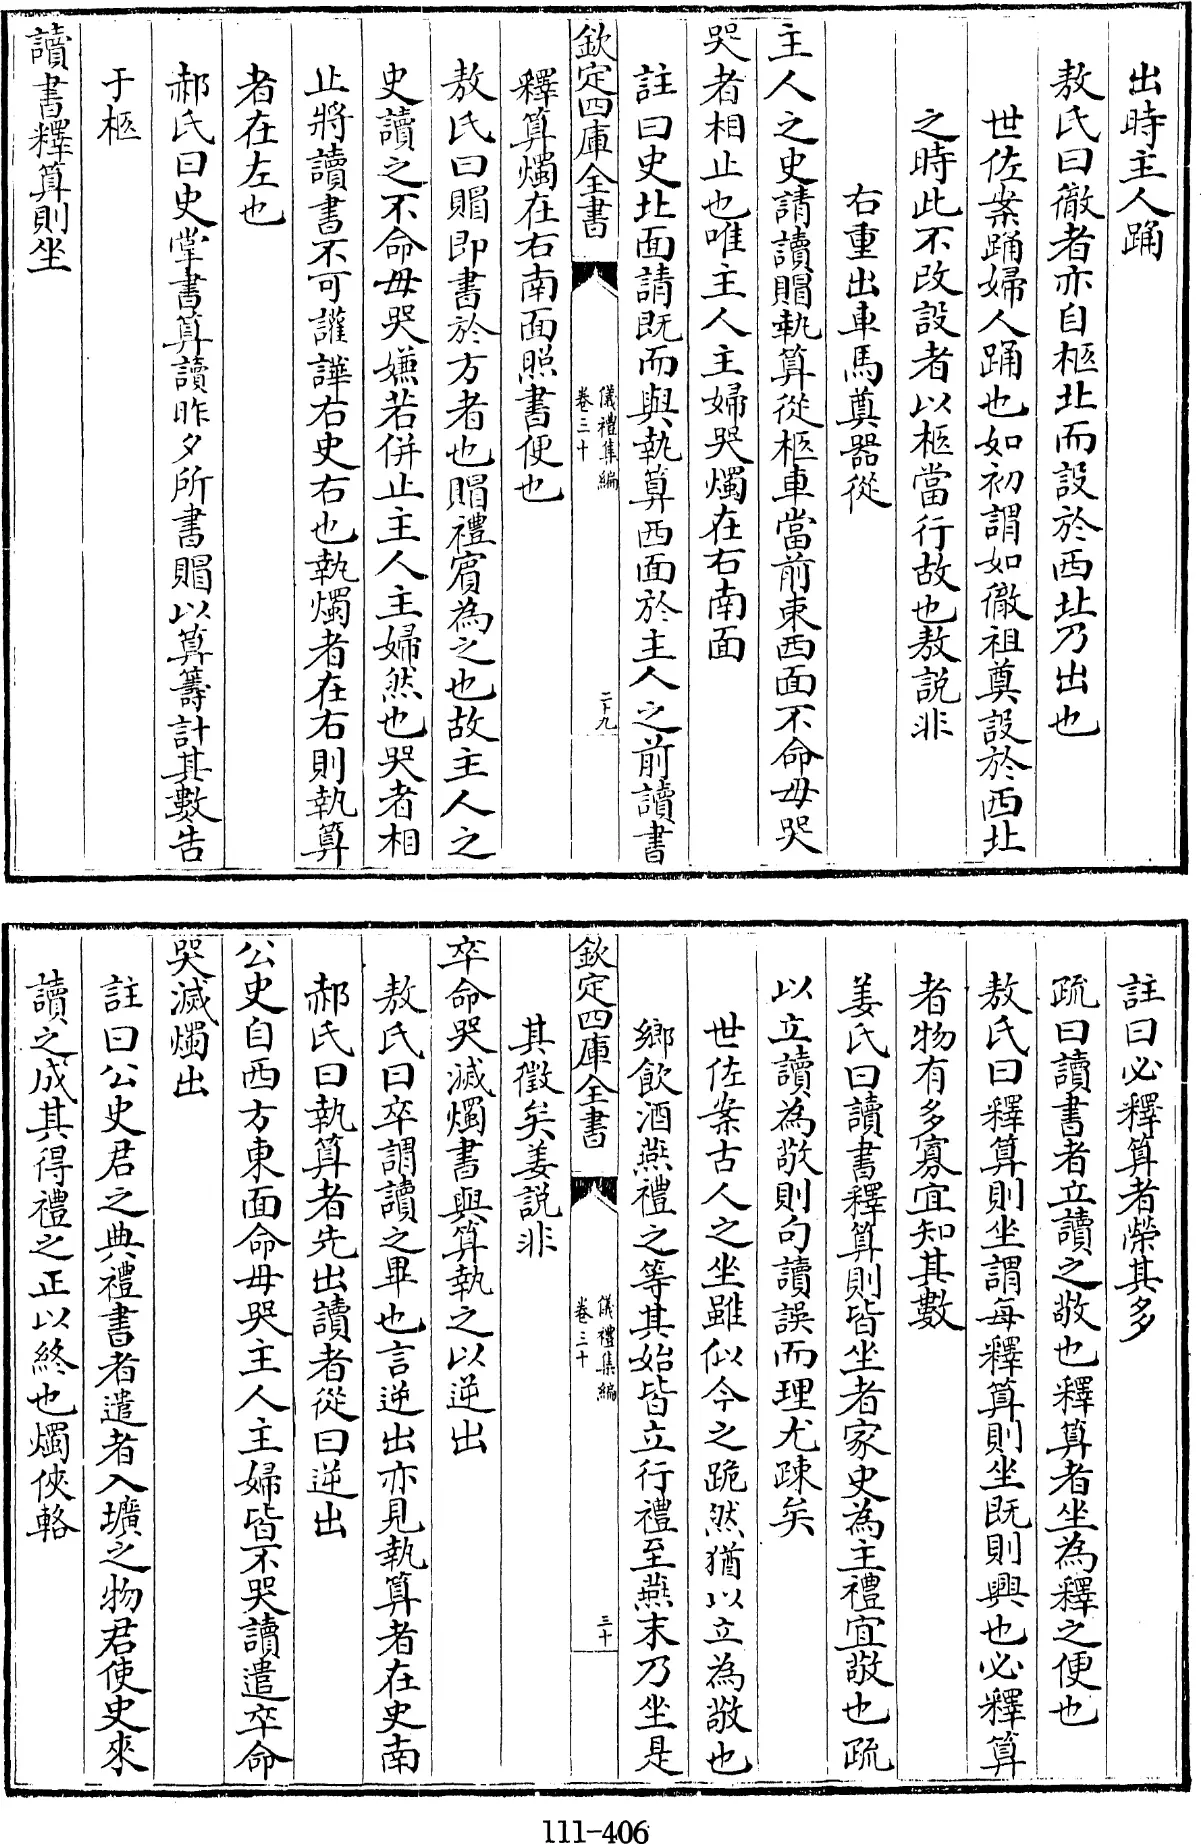 出時主人踊
敖氏曰徹者亦自柩北而設於西北乃出也
世佐案踊婦人踊也如初謂如徹祖奠設於西北
之時此不改設者以柩當行故也敖說非
右重出車馬奠器從
主人之史請讀賵執算從柩車當前東西面不命毋哭
哭者相止也唯主人主婦哭燭在右南面
註曰史北面請既而與執算西面於主人之前讀書
欽定四庫全書
儀禮集編
卷三十
二十九
釋算燭在右南面照書便也
敖氏曰賵即書於方者也賵禮賓為之也故主人之
史讀之不命毋哭嫌若併止主人主婦然也哭者相
止將讀書不可讙譁右史右也執燭者在右則執算
者在左也
郝氏曰史掌書算讀昨夕所書賵以算籌計其數告
于柩
讀書釋算則坐
註曰必釋算者榮其多
疏曰讀書者立讀之敬也釋算者坐為釋之便也
敖氏曰釋算則坐謂每釋算則坐既則興也必釋算
者物有多寡宜知其數
姜氏曰讀書釋算則皆坐者家史為主禮宜敬也疏
以立讀為敬則句讀誤而理尤疎矣
世佐案古人之坐雖似今之跪然猶以立為敬也
鄉飲酒燕禮之等其始皆立行禮至燕末乃坐是
欽定四庫全書
儀禮集編
卷三十
三十
其徵矣姜說非
卒命哭滅燭書與算執之以逆出
敖氏曰卒謂讀之畢也言逆出亦見執算者在史南
郝氏曰執算者先出讀者從曰逆出
公史自西方東面命毋哭主人主婦皆不哭讀遣卒命
哭滅燭出
註曰公史君之典禮書者遣者入壙之物君使史來
讀之成其得禮之正以終也燭俠輅
111-406